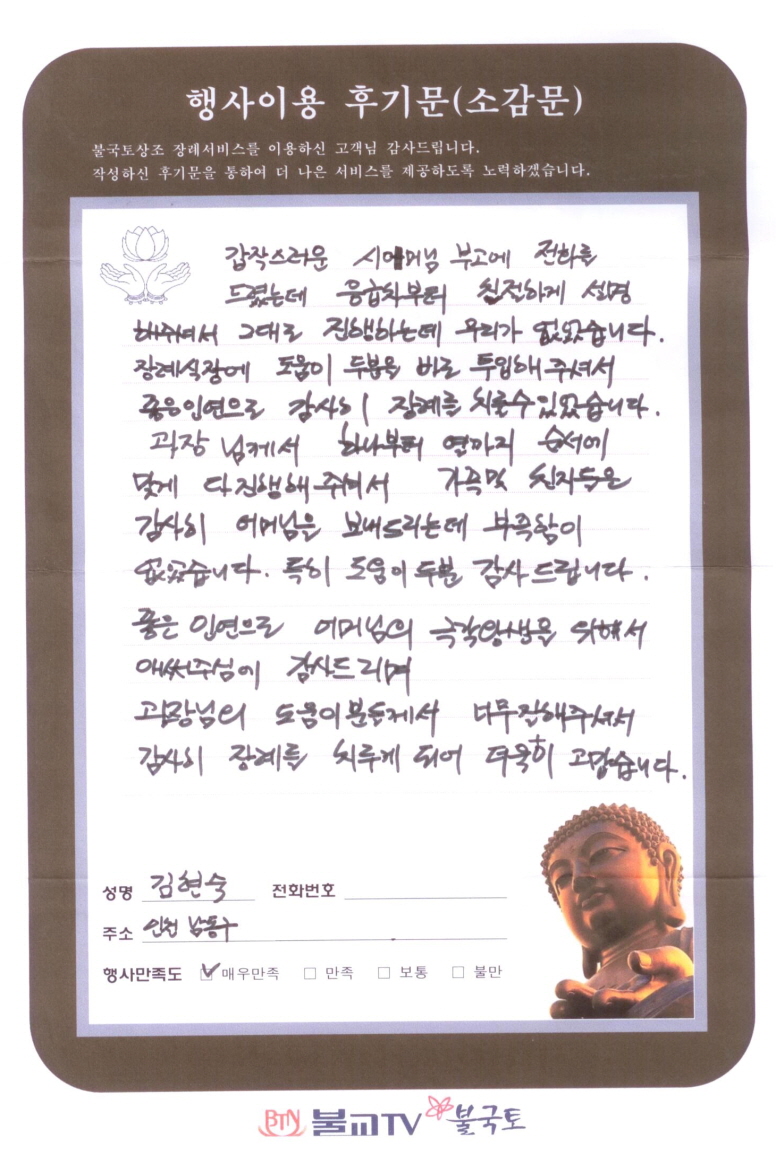 행사이용 후기문(소감문)
불국토상조 장례서비스를 이용하신 고객님 감사드립니다.
작성하신 후기문을 통하여 더 나은 서비스를 제공하도록 노력하겠습니다.
갑작스러운 시어머님 부고에 전화를
드렸는데 응급차부터 친절하게 설명
해주셔서 그대로 진행하는데 무리가 없었습니다.
장례식장에 도움이 두분을 바로 투입해 주셔서
좋은인연으로 감사히 장례를 치를수있었습니다.
과장님께서 하나부터 열까지 순서에
맞게 다진행해주셔서 가족및 친지들은
감사히 어머님을 보내드리는데 부족함이
없었습니다. 특히 도움이 두분 감사드립니다.
좋은 인연으로 어머님의 극락왕생을 위해서
애써주심에 감사드리며
과장님의 도움이분들께서 너무잘해주셔서
감사히 장례를 치루게 되어 더욱히 고맙습니다.
성명 김현숙 전화번호
주소 인천 남동구
행사만족도 ☑ 매우만족 □ 만족 □ 보통 □ 불만
BTN 불교TV 불국토